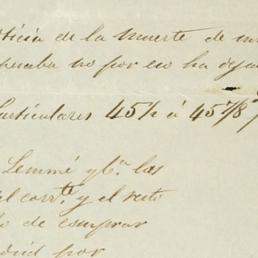 ticia de la muerte de mi
peraba no por eso ha deja
Particulares 45½ á 45⅞
Lemmé y Cª. las
el corrte. y el resto
de comprar
por